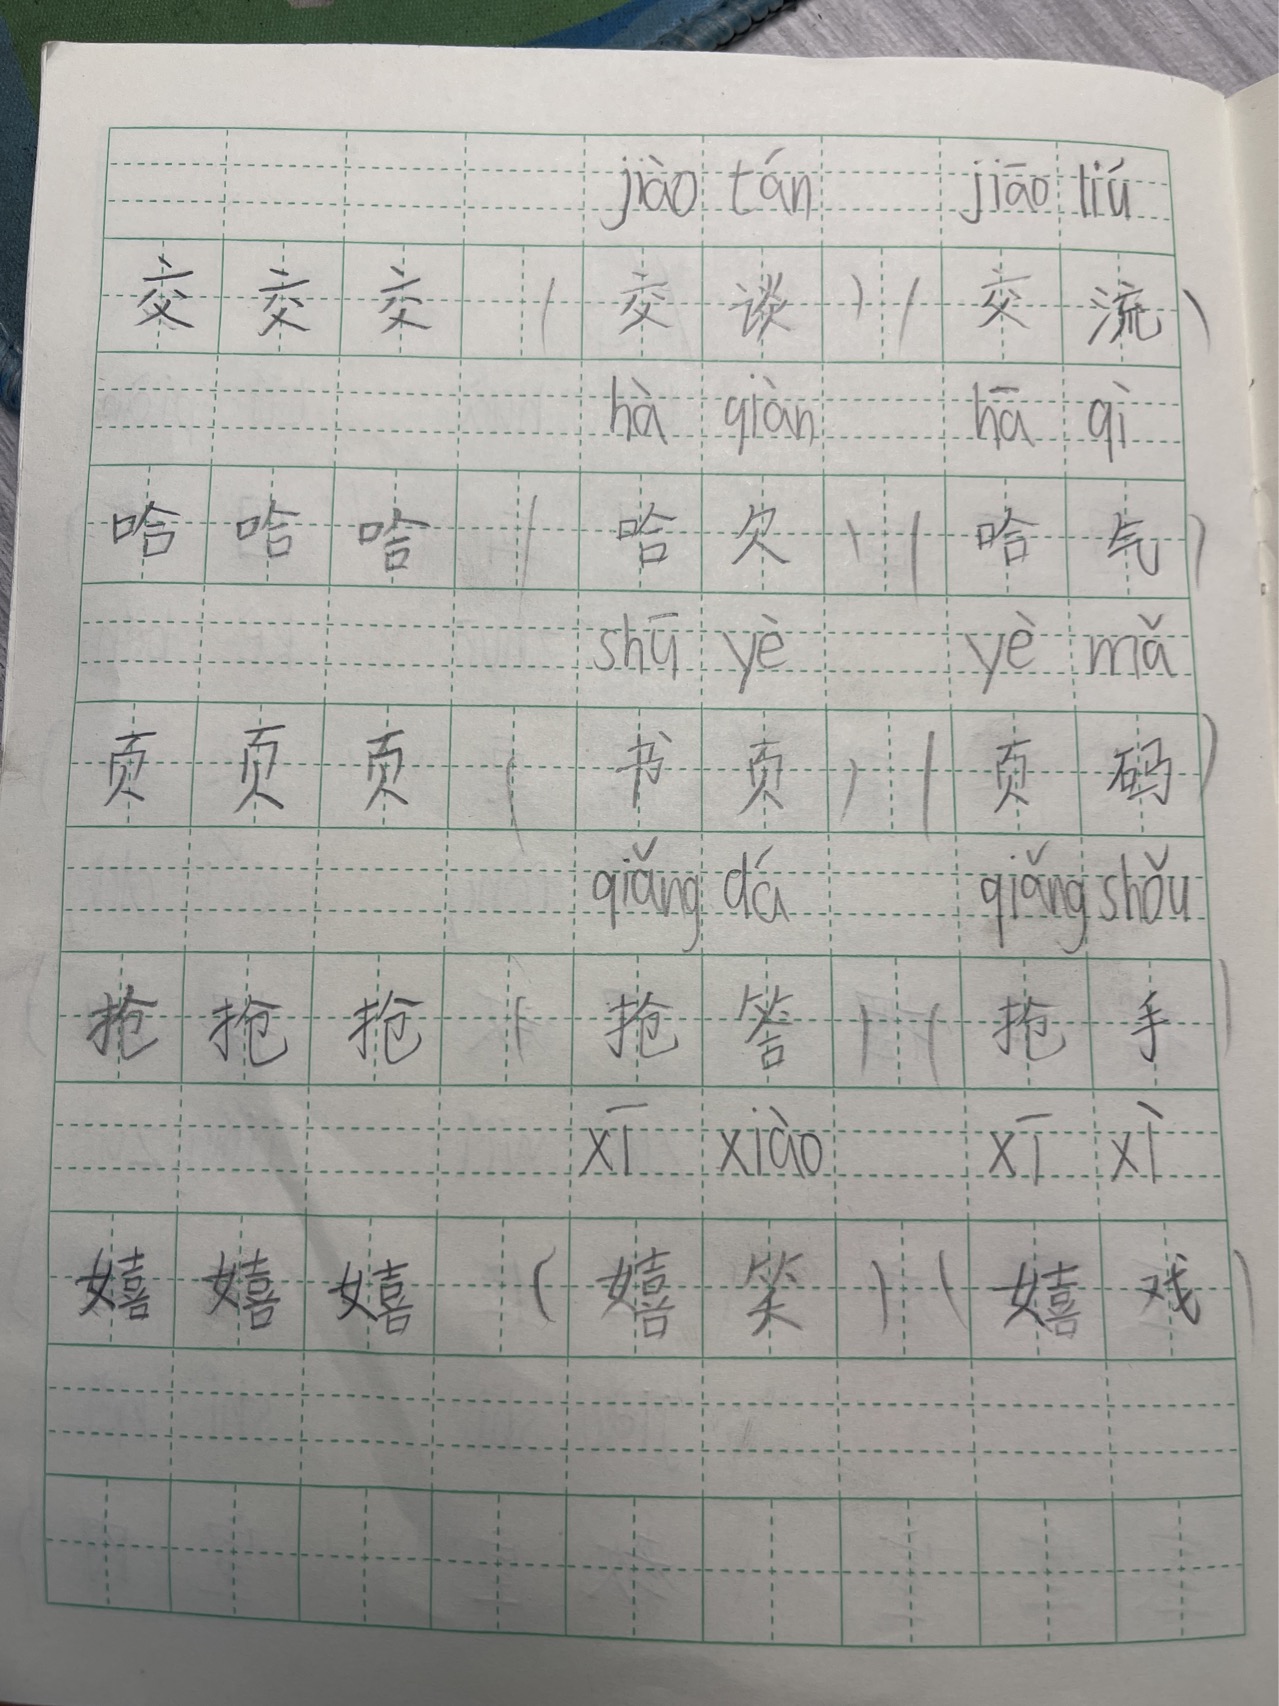 jiào tán jiāo liú
交 交 交 ( 交 谈 ) ( 交 流 )
hà qiàn hā qì
哈 哈 哈 ( 哈 欠 ) ( 哈 气 )
shū yè yè mǎ
页 页 页 ( 书 页 ) ( 页 码 )
qiǎng dá qiǎng shǒu
抢 抢 抢 ( 抢 答 ) ( 抢 手 )
xī xiào xī xì
嬉 嬉 嬉 ( 嬉 笑 ) ( 嬉 戏 )